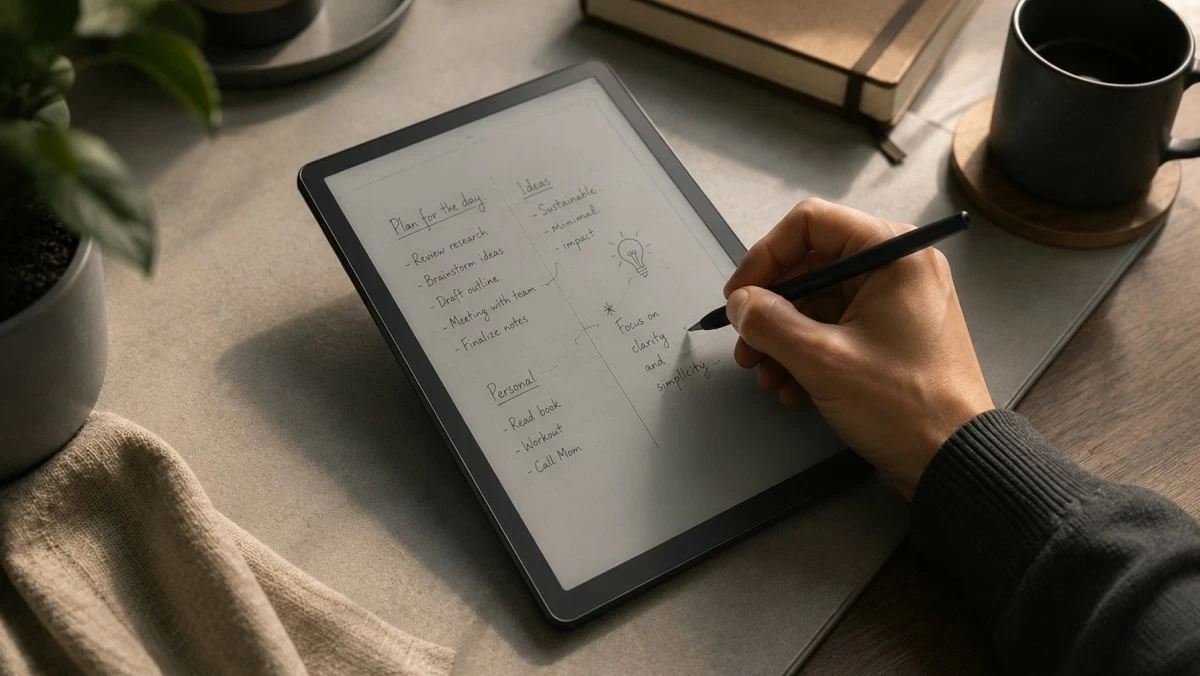 Plan for the day
- Review research
- Brainstorm ideas
- Draft outline
- Meeting with team
- Finalize notes
Personal
- Read book
- Workout
- Call Mom
Ideas
- Sustainable
- Minimal
- impact
* Focus on
clarity
and
simplicity